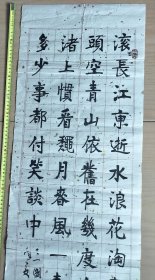 滚長江東逝水浪花淘
頭空青山依舊在幾度
渚上慣看龝月春風一
多少事都付笑談中